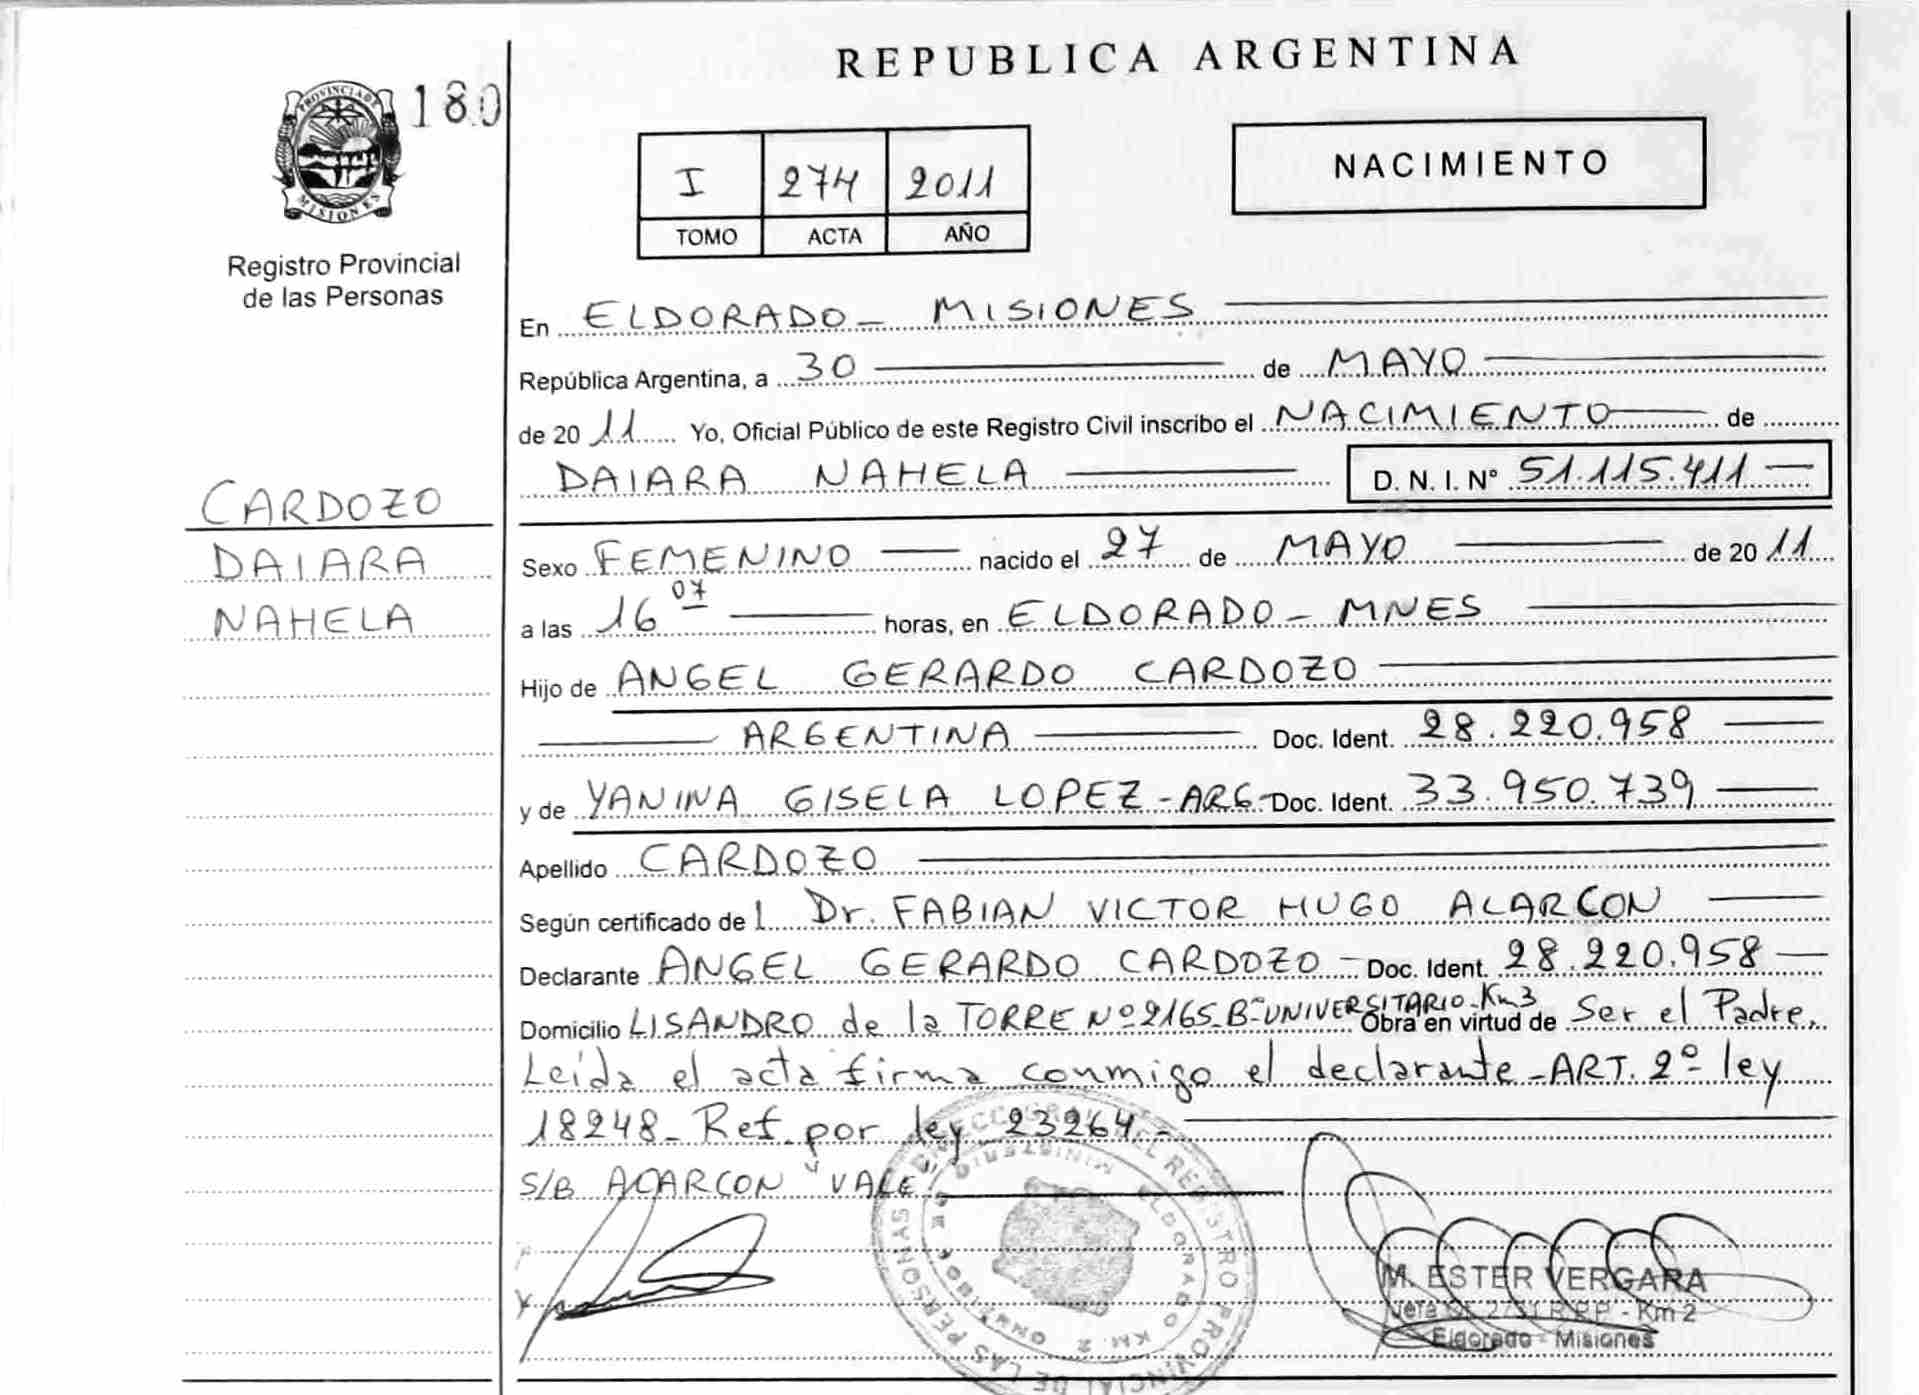 REPUBLICA ARGENTINA
PROVINCIA DE MISIONES
180
Registro Provincial
de las Personas
I 274 2011
TOMO ACTA AÑO
NACIMIENTO
CARDOZO
DAIARA
NAHELA
En ELDORADO - MISIONES
República Argentina, a 30 de MAYO
de 2011 Yo, Oficial Público de este Registro Civil inscribo el NACIMIENTO de
DAIARA NAHELA D. N. I. Nº 51.115.411
Sexo FEMENINO nacido el 27 de MAYO de 2011
a las 16 07 horas, en ELDORADO - MNES
Hijo de ANGEL GERARDO CARDOZO
ARGENTINA Doc. Ident. 28.220.958
y de YANINA GISELA LOPEZ - ARG - Doc. Ident. 33.950.739
Apellido CARDOZO
Según certificado de Dr. FABIAN VICTOR HUGO ALARCON
Declarante ANGEL GERARDO CARDOZO - Doc. Ident. 28.220.958
Domicilio LISANDRO de la TORRE Nº 2165-Bº UNIVERSITARIO-Km3 Obra en virtud de Ser el Padre.
Leída el acta firma conmigo el declarante - ART. 2º ley
18248 - Ref. por ley 23264.-
S/B ALARCON "VALE"
REGISTRO PROVINCIAL DE LAS PERSONAS
MINISTERIO DE GOBIERNO
ELDORADO KM. 2
M. ESTER VERGARA
Jefa R.P.P. - Km 2
Eldorado - Misiones